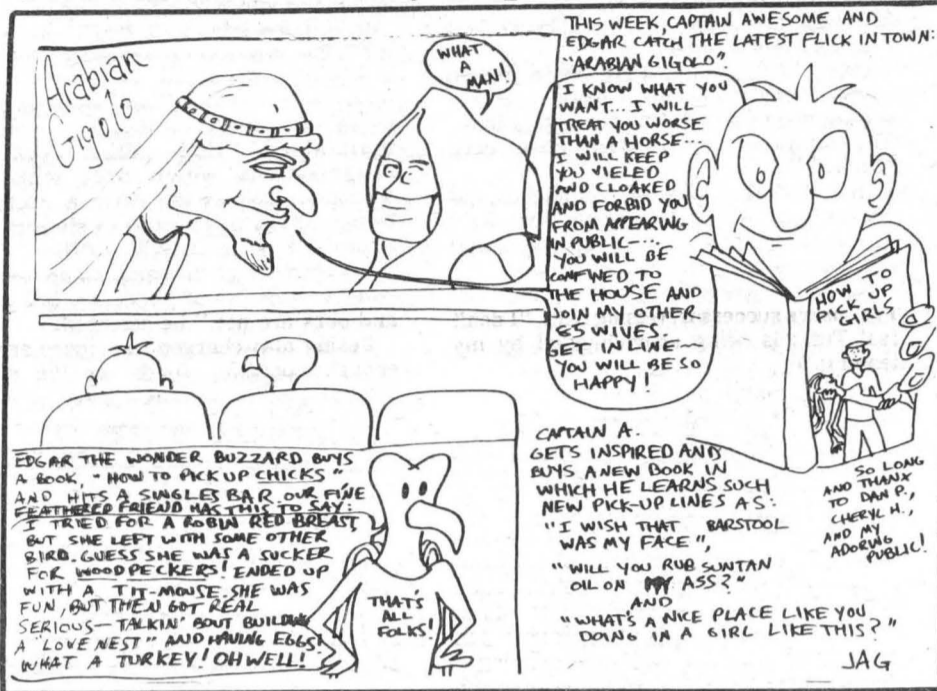 THIS WEEK, CAPTAIN AWESOME AND
EDGAR CATCH THE LATEST FLICK IN TOWN:
"ARABIAN GIGOLO"
Arabian
Gigolo
WHAT
A
MAN!
I KNOW WHAT YOU
WANT... I WILL
TREAT YOU WORSE
THAN A HORSE...
I WILL KEEP
YOU VIELED
AND CLOAKED
AND FORBID YOU
FROM APPEARING
IN PUBLIC-...
YOU WILL BE
CONFINED TO
THE HOUSE AND
JOIN MY OTHER
65 WIVES.
GET IN LINE-
YOU WILL BE SO
HAPPY!
HOW TO
PICK UP
GIRLS
EDGAR THE WONDER BUZZARD BUYS
A BOOK, "HOW TO PICK UP CHICKS"
AND HITS A SINGLES BAR. OUR FINE
FEATHERED FRIEND HAS THIS TO SAY:
I TRIED FOR A ROBIN RED BREAST
BUT SHE LEFT WITH SOME OTHER
BIRD. GUESS SHE WAS A SUCKER
FOR WOODPECKERS! ENDED UP
WITH A TIT-MOUSE. SHE WAS
FUN, BUT THEN GOT REAL
SERIOUS- TALKIN' BOUT BUILDING
A "LOVE NEST" AND HAVING EGGS!
WHAT A TURKEY! OH WELL!
THAT'S
ALL
FOLKS!
CAPTAIN A.
GETS INSPIRED AND
BUYS A NEW BOOK IN
WHICH HE LEARNS SUCH
NEW PICK-UP LINES AS:
"I WISH THAT BARSTOOL
WAS MY FACE",
"WILL YOU RUB SUNTAN
OIL ON MY ASS?"
AND
"WHAT'S A NICE PLACE LIKE YOU
DOING IN A GIRL LIKE THIS?"
SO LONG
AND THANX
TO DAN P.,
CHERYL H.,
AND MY
ADORING
PUBLIC!
JAG